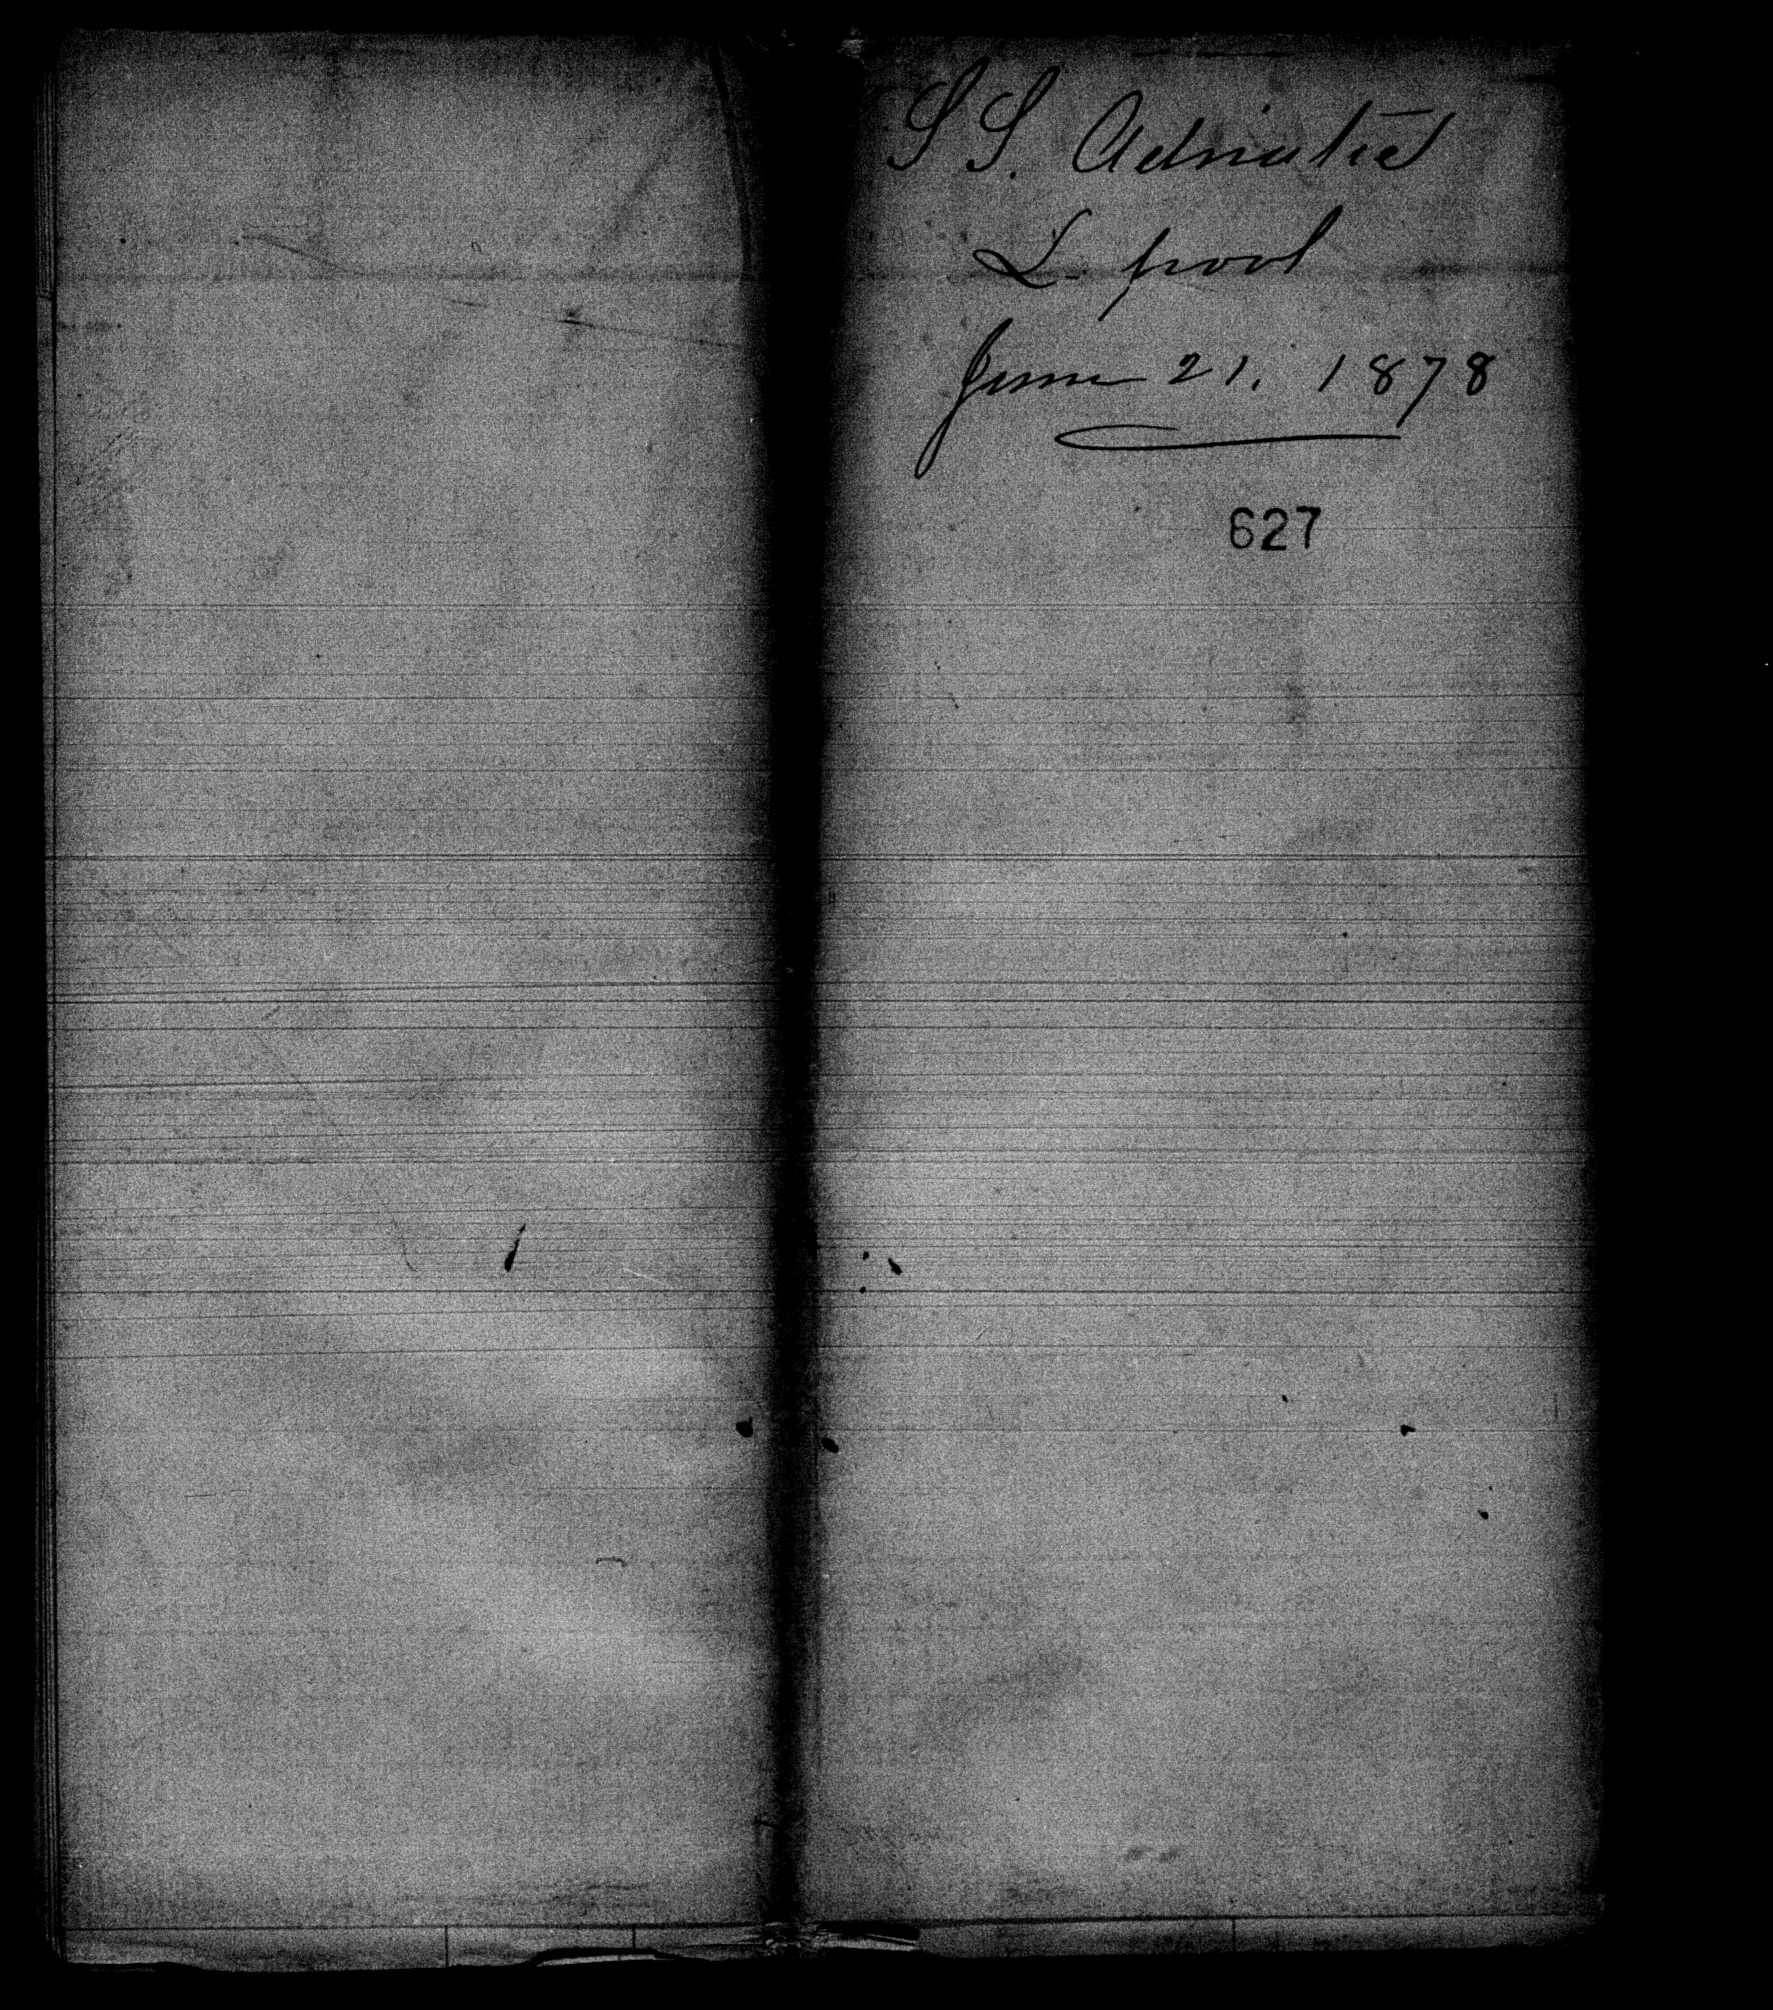 SS. Adriatic
L. pool
June 21. 1878
627